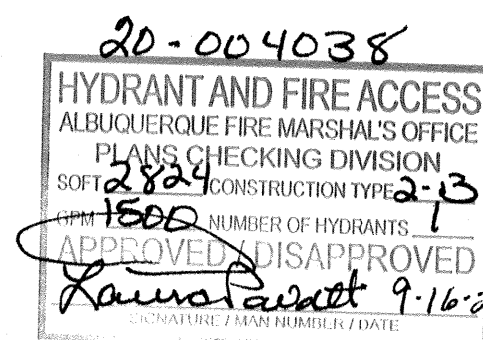 20-004038
HYDRANT AND FIRE ACCESS
ALBUQUERQUE FIRE MARSHAL'S OFFICE
PLANS CHECKING DIVISION
SQFT 2824 CONSTRUCTION TYPE 2-B
GPM 1500 NUMBER OF HYDRANTS 1
APPROVED / DISAPPROVED
9-16-2
SIGNATURE / MAN NUMBER / DATE